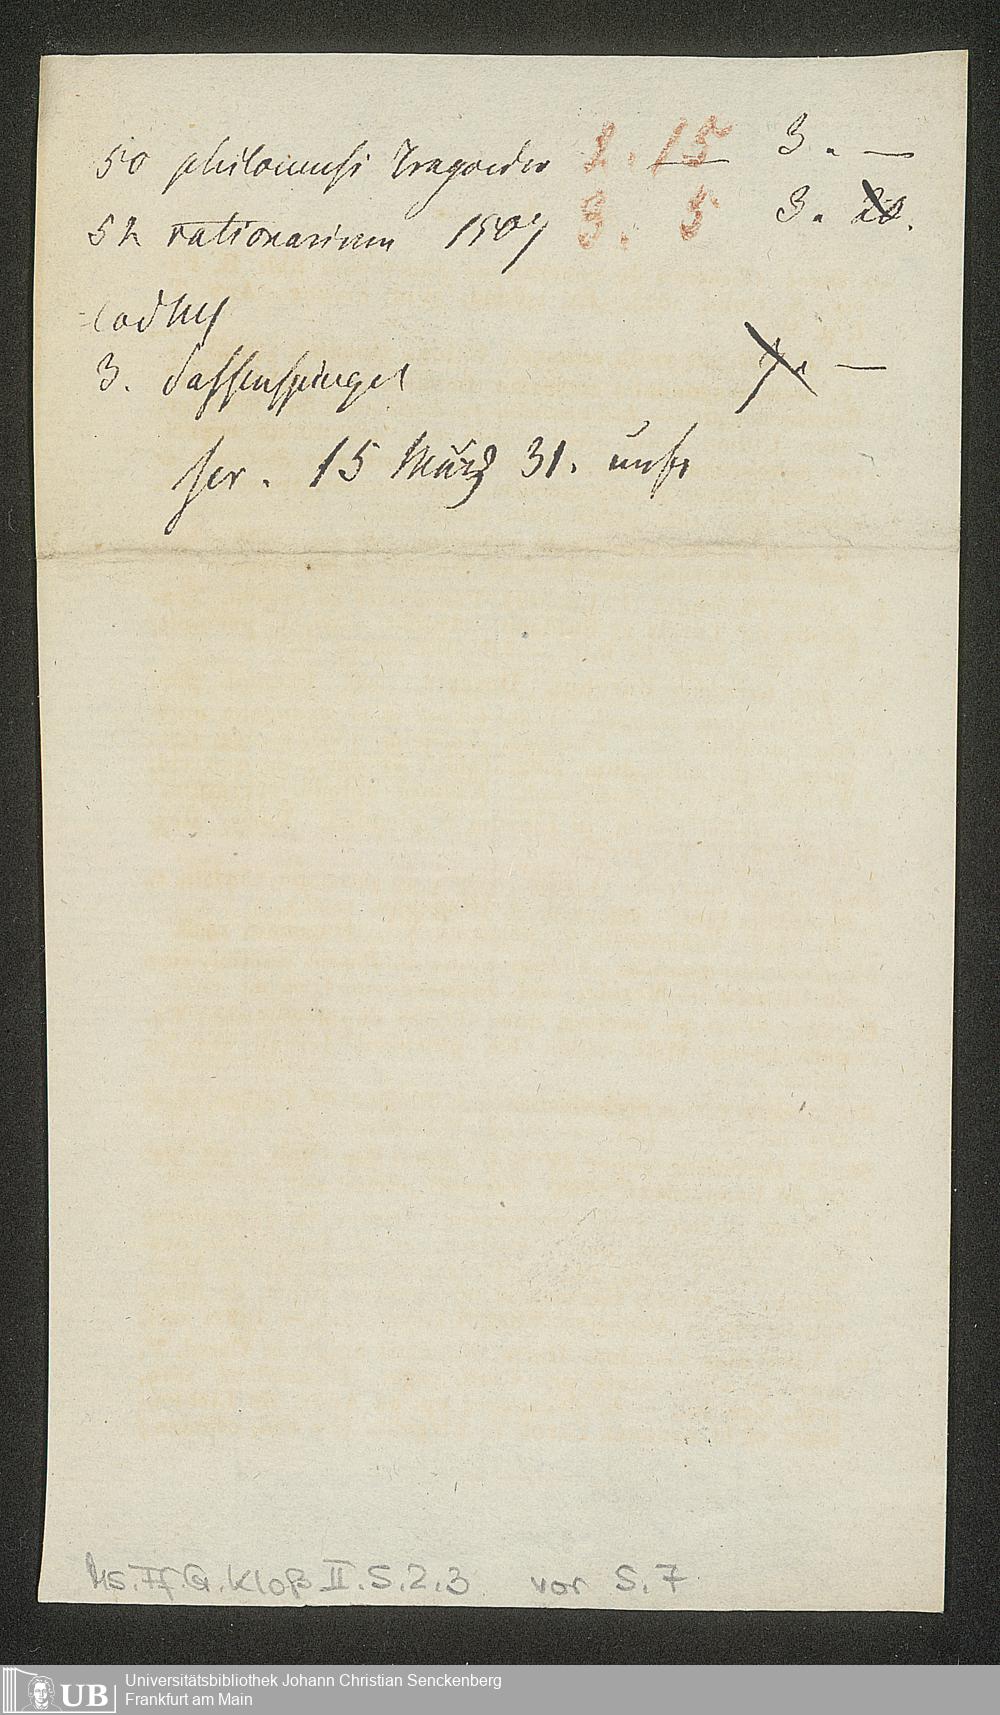 50 philonensi Tragoedia 2. 15 3. —
52 rationarium 1507 3. 5 3. 28.
3. Sassenspiegel 7. —
scr. 15 März 31.
Ms. Ff. G. Kloß II. S. 2. 3 vor S. 7
UB Universitätsbibliothek Johann Christian Senckenberg
Frankfurt am Main